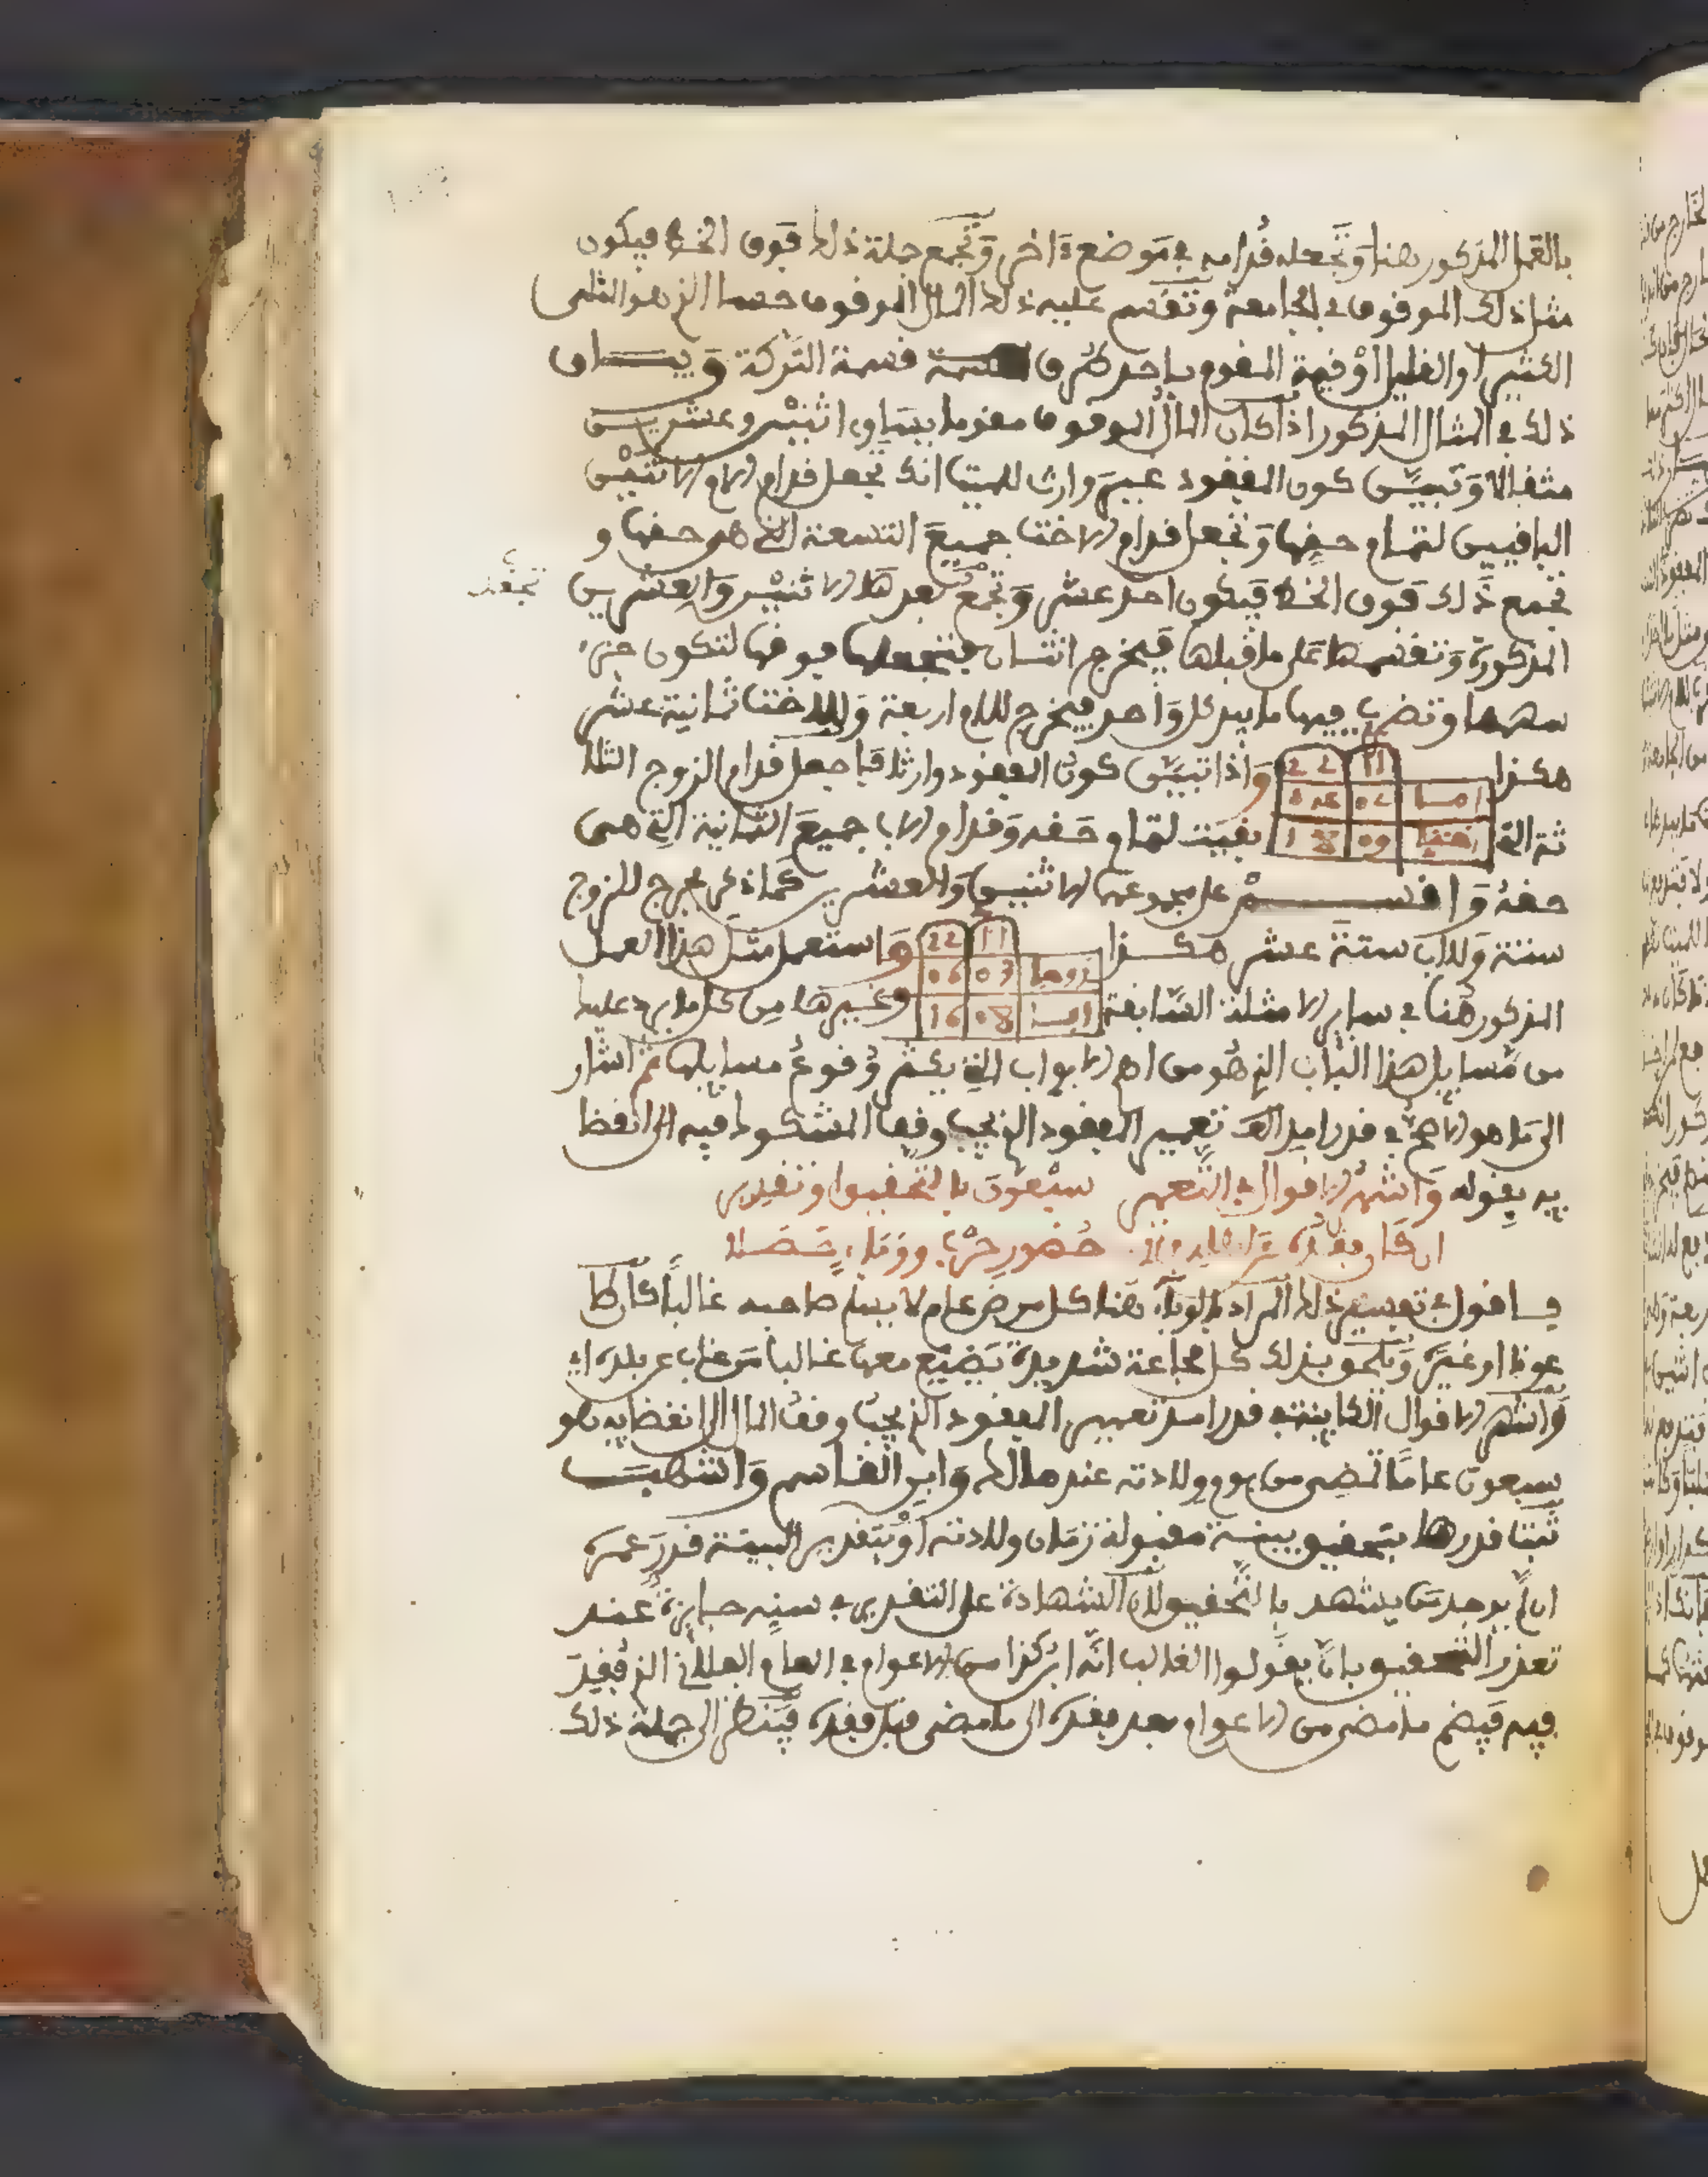 بالعمل المذكور هنا وتجعله قدامه في موضع ءاخر وتجمع جملة ذلك فوق الخط فيكون
مثل ذلك الموقوف في الجامعة وتقسم عليه ذلك المال الموقوف حسما الذي هو الثلثى
الكثير او القليل أو قيمة المقوم باحد طرق قسمة التركة وبيــــان
ذلك في المثال المذكور اذا كان المال الموقوف مقوما بيساوى اثنين وعشريــن
مثقالا وتبيــن كون المفقود غير وارث للميت انك تجعل قدام الام الاثنين
الباقيين لتمام حقها وتجعل قدام الاخت جميع التسعة التي هي حقها و
تجمع ذلك فوق الخط فيكون احد عشر وتجمع بعد هذا الاثنين والعشرين
المذكورة وتقسمها على ما قبلها فيخرج اثنان فتجعلها فوقها لتكون جزء
سهمها وتضرب فيها ما بيد كل واحد فيخرج للام اربعة وللاخت ثمانية عشر
هكذا 11 22 واذا تبين كون المفقود وارثا فاجعل قدام الزوج الثلا
امـا 02 04
ثة التي اختها 09 18 بقيت لتمام حقه وقدام الاب جميع الثمانية التي هي
حقه واقســـم على مجموعها الاثنين والعشرين كما ذكر يخرج للزوج
ستة وللاب ستة عشر هكــذا 11 22 واستعمل مثل هذا العمل
زوجها 03 06
المذكور هنا في ساير الامثلة السابقة ابـا 08 16 وغيرها من كل ما يرد عليك
من مسايل هذا الباب الذي هو من اهم الابواب التي يكثر وقوع مسايلها ثم اشار
الى ما هو الاصح في قدر امد تعمير المفقود الذي يجب وقف المشكوك فيه الى انقضا
يه بقوله واشهر الاقوال في التعمير سبعون بالتحقيق او تقدير
ان كان فقده حضور حرب ووباء حصلا
فـاقول في تفسير ذلك المراد بالوباء هنا كل مرض عام لا يسلم صاحبه غالبا كان طا
عونا او غيره ويلحق بذلك كل مجاعة شديدة يضيع معها غالبا من غاب عن بلده اي
واشهر الاقوال الكاينة في قدر امد تعمير المفقود الذي يجب وقف المال الى انقضايه هو
سبعون عاما تمضى من يوم ولادته عند مالك وابن القاسم واشهب
ثبت قدرها بتحقيق بينة مقبولة زمان ولادته او بتقدير البينة قدر عمره
ان لم يوجد من يشهد بالتحقيق لان الشهادة على التقدير في سنه جايزة عند
تعذر التحقيق بان يقولوا الغالب انه ابن كذا من الاعوام في العام الفلاني الذي فقد
فيه فيضم ما مضى من الاعوام بعد فقده الى ما مضى قبل فقده فينظر الى جملة ذلك